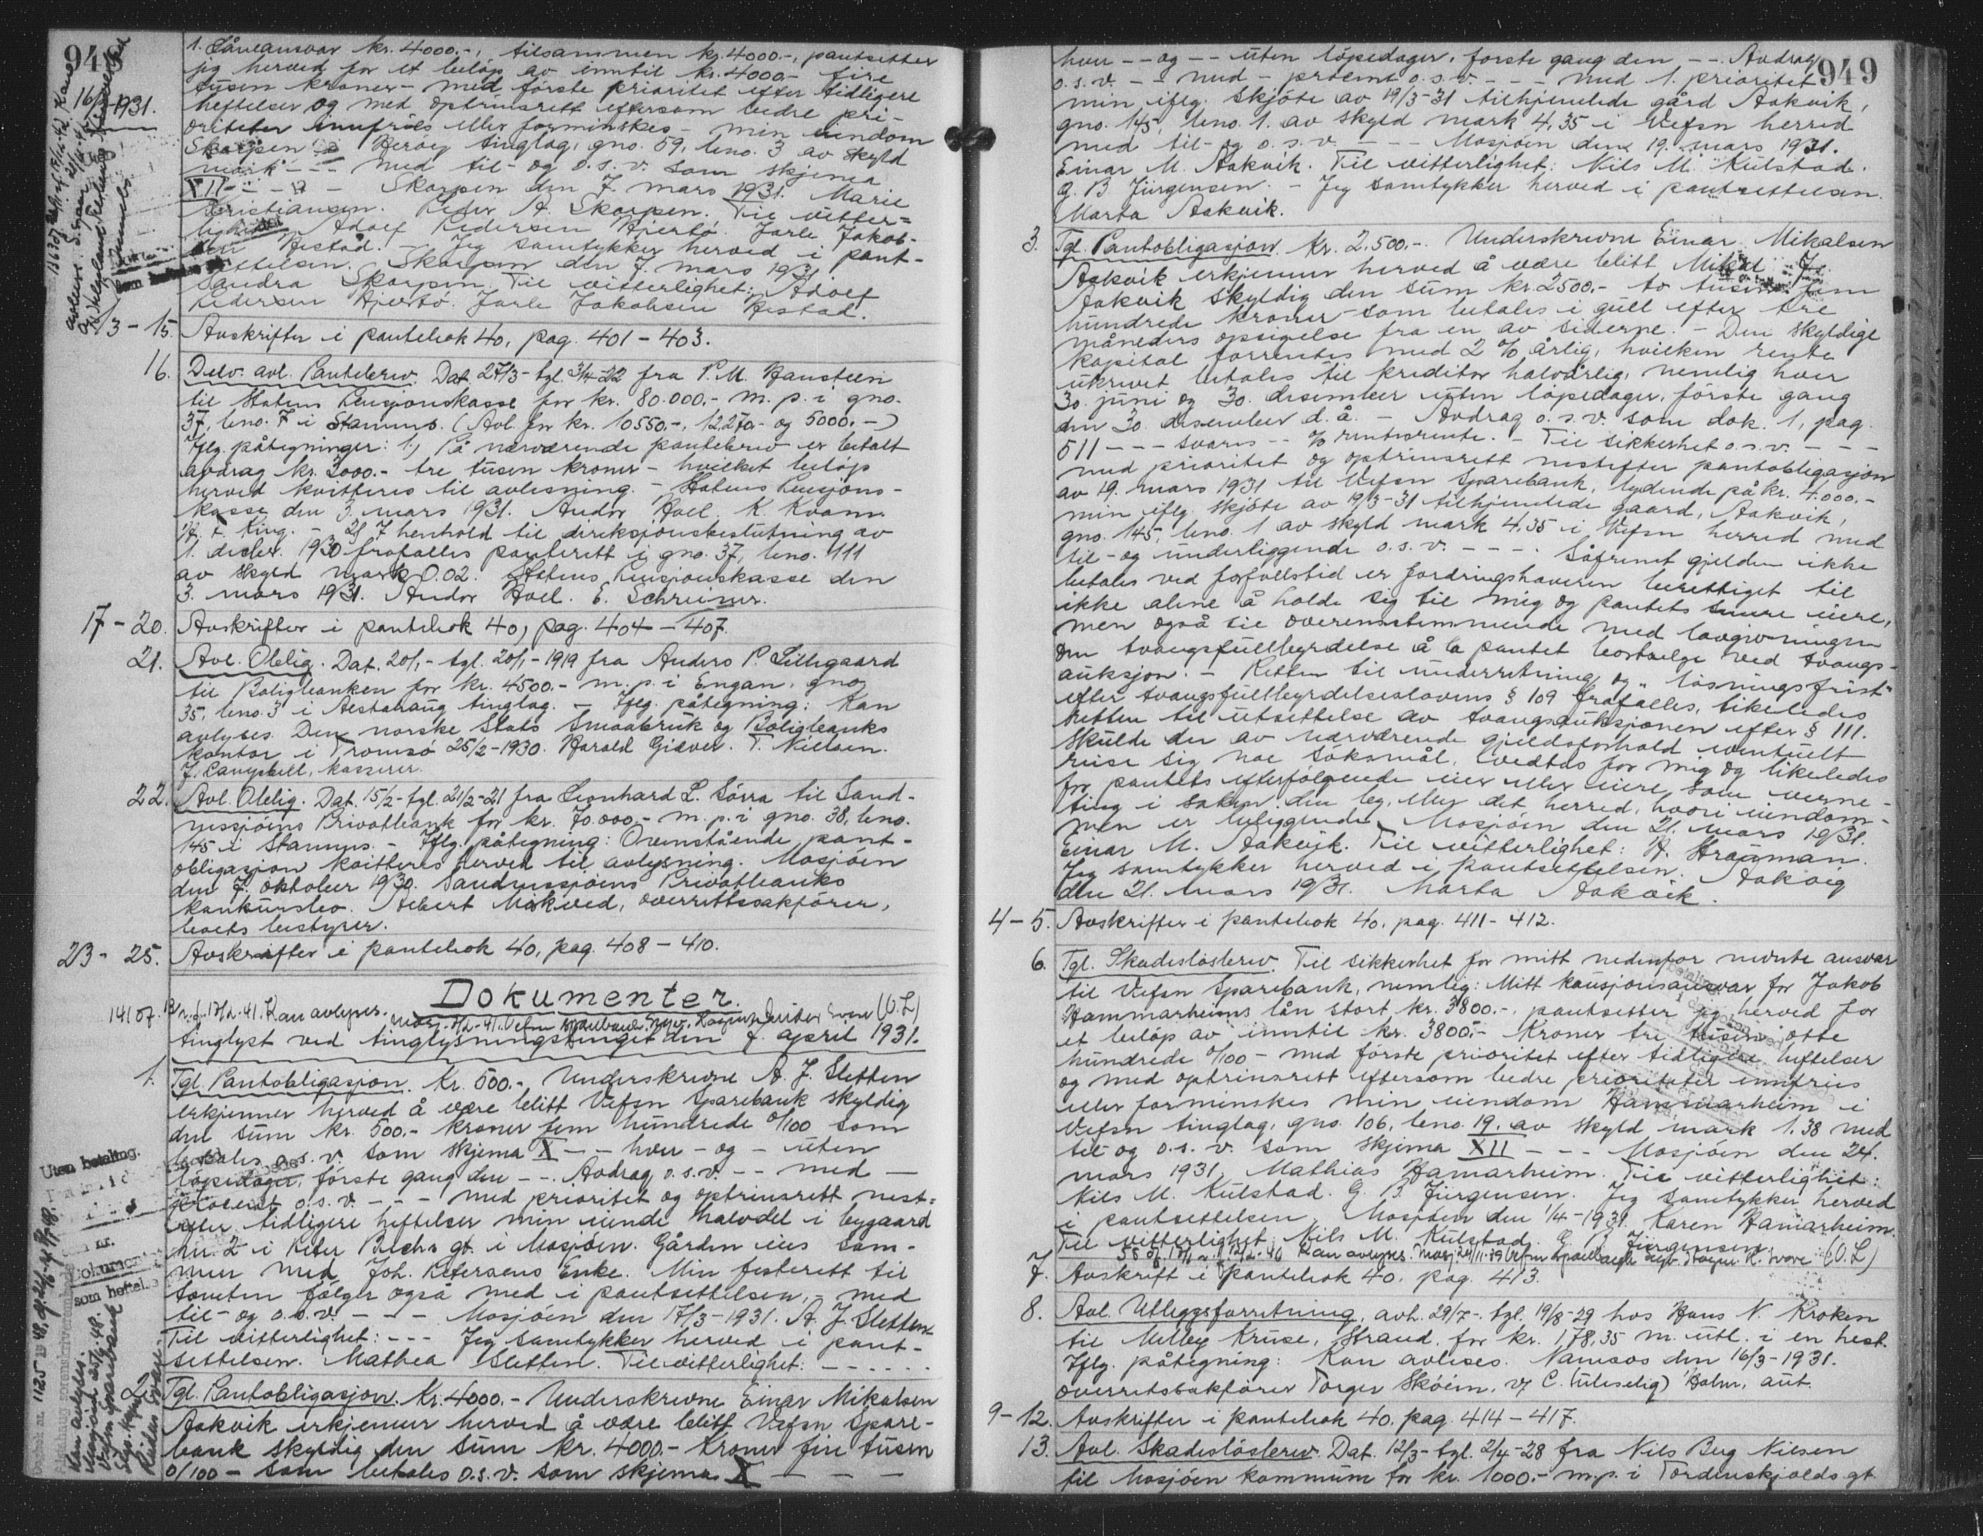 948
1. Låneansvar kr. 4000.-, tilsammen kr. 4000.-, pantsetter
jeg herved for et beløp av inntil kr. 4000.- fire
tusen kroner - med første prioritet efter tidligere
heftelser og med optrinsrett eftersom bedre pri-
oriteter innfries eller forminskes - min eiendom
Skorpen i Herøy tinglag, gno. 59, bno. 3 av skyld
mark - - - med til- og o.s.v. som skjema
XII - - - Skorpen den 7. mars 1931. Marie
Kristiansen. Peder A. Skorpen. Til vitter-
lighet: Adolf Pedersen Hjertø. Jarle Jakob-
sen Hestad. - Jeg samtykker herved i pant-
settelsen. Skorpen den 7. mars 1931.
Sandra Skorpen. Til vitterlighet: Adolf
Pedersen Hjertø. Jarle Jakobsen Hestad.
13 - 15. Avskrifter i pantebok 40, pag. 401 - 403.
16. Delv. avl. Pantebrev. Dat. 27/3 - tgl. 3/4-22 fra P. M. Hansteen
til Statens Pensjonskasse for kr. 80.000,- m. p. i gno.
37, bno. 7 i Stamnes. (Avl. for kr. 10550.-, 12270.- og 5000.-)
Iflg. påtegninger: 1, På nærværende pantebrev er betalt
avdrag kr. 3000.- tre tusen kroner - hvilket beløp
herved kvitteres til avlesning. - Statens Pensjons-
kasse den 3. mars 1931. Andor Hoel. K. Kvam
2) I henhold til direksjonsbeslutning av
1. desbr. 1930 frafalles panterett i gno. 37, bno. 111
av skyld mark 0.02. Statens Pensjonskasse den
3. mars 1931. Andor Hoel. E. Schreiner.
17 - 20. Avskrifter i pantebok 40, pag. 404 - 407.
21. Avl. Oblig. Dat. 20/1 - tgl. 20/1 - 1919 fra Anders P. Lillegaard
til Boligbanken for kr. 4500.- m. p. i Engan, gno
35, bno. 3 i Alstahaug tinglag. - Iflg. påtegning: Kan
avlyses. Den norske Stats Småbruk og Boligbanks
kontor i Tromsø 25/2-1930. Harald Giæver. T. Nielsen.
J. Langseth, kasserer.
22. Avl. Oblig. Dat. 15/2 - tgl. 21/2-21 fra Leonhard L. Sørra til Sand-
nessjøens Privatbank for kr. 70.000.- m. p. i gno. 38, bno.
145 i Stamnes. - Iflg. påtegning: Ovenstående pant-
obligasjon kvitteres herved til avlysning. Mosjøen
den 7. oktober 1930. Sandnessjøens Privatbanks
konkursbo. Albert Mokved, overrettssakfører,
boets bestyrer.
23 - 25. Avskrifter i pantebok 40, pag. 408 - 410.
Dokumenter
tinglyst ved tinglysningstinget den 7. april 1931.
1. Tgl. Pantobligasjon. Kr. 500.-. Underskrevne A. J. Sletten
erkjenner herved å være blitt Vefsn Sparebank skyldig
den sum kr. 500.- kroner fem hundrede 0/100 som
betales o.s.v. som skjema X - - hver - og - uten
løpedager, første gang den - - . Avdrag o.s.v. - - med -
procent o.s.v. - - - med prioritet og optrinsrett nest-
efter tidligere heftelser min eiende halvdel i bygaard
nr. 2 i Peter Bechs gt. i Mosjøen. Gården eies sam-
men med Joh. Petersens Enke. Min festerett til
tomten følger også med i pantsettelsen, med
til- og o.s.v. - - - Mosjøen den 17/3-1931. A. J. Sletten.
Til vitterlighet: - - - Jeg samtykker herved i pant-
settelsen. Mathea Sletten. Til vitterlighet: - - - - -
2. Tgl. Pantobligasjon. Kr. 4000.- Underskrevne Einar Mikalsen
Aakvik erkjenner herved å være blitt Vefsn Spare-
bank skyldig den sum kr. 4000.- kroner fire tusen
0/100 - som betales o.s.v. som skjema X - - -
Uten betaling.
949
hver - - og - - uten løpedager, første gang den - - . Avdrag
o.s.v. - - med - procent o.s.v. - - - med 1. prioritet
min iflg. skjøte av 19/3-31 tilhjemlede gård Aakvik,
gno. 145, bno. 1. av skyld mark 4,35 i Vefsn herred
med til- og o.s.v. - - - Mosjøen den 19. mars 1931.
Einar M. Aakvik. Til vitterlighet: Nils M. Kulstad.
G. B. Jürgensen. - Jeg samtykker herved i pantsettelsen.
Marta Aakvik.
3. Tgl. Pantobligasjon. Kr. 2.500.-. Underskrevne Einar Mikalsen
Aakvik erkjenner herved å være blitt Mikal J.
Aakvik skyldig den sum kr. 2500.- to tusen fem
hundrede kroner - som betales i gull efter tre
måneders opsigelse fra en av siderne. - Den skyldige
kapital forrentes med 2 % årlig, hvilken rente
ukrevet betales til kreditor halvårlig, nemlig hver
30. juni og 30. desember uten løpedager, første gang
den 30. desember d. å. - Avdrag o.s.v. som dok. 1, pag.
511 - - - svares - - % rentesrente. - Til sikkerhet o.s.v. - - -
med prioritet og optrinsrett nestefter pantobligasjon
av 19. mars 1931 til Vefsn Sparebank, lydende på kr. 4.000.-
min iflg. skjøte av 19/3-31 tilhjemlede gaard, Aakvik,
gno. 145, bno. 1 av skyld mark 4,35 i Vefsn herred med
til- og underliggende o.s.v. - - - - . Såfremt gjelden ikke
betales ved forfallstid er fordringshaveren berettiget til
ikke alene å holde sig til mig og pantets senere eiere,
men også til overensstemmende med lovgivningen
om tvangsfullbyrdelse å la pantet bortselge ved tvangs-
auksjon. - Retten til underretning og "løsningsfrist"
efter tvangsfullbyrdelseslovens § 109 frafalles, likeledes
retten til utsettelse av tvangsauksjonen efter § 111.
Skulde der av nærværende gjeldsforhold eventuelt
reise sig noe søksmål, vedtas for mig og likeledes
for pantets efterfølgende eier eller eiere, som verne-
ting i saken den by, eller det herred, hvori eiendom-
men er beliggende. Mosjøen den 21. mars 1931.
Einar M. Aakvik. Til vitterlighet: H. Strauman.
Jeg samtykker herved i pantsettelsen. Aakvig
den 21. mars 1931. Marta Aakvik.
4 - 5. Avskrifter i pantebok 40, pag. 411 - 412.
6. Tgl. Skadesløsbrev. Til sikkerhet for mitt nedenfor nevnte ansvar
til Vefsn Sparebank, nemlig: Mitt kausjonsansvar for Jakob
Hammarheims lån stort kr. 3800.-, pantsetter jeg herved for
et beløp av inntil kr. 3800.- Kroner tre tusen otte
hundrede 0/100 - med første prioritet efter tidligere heftelser
og med optrinsrett eftersom bedre prioriteter innfries
eller forminskes min eiendom Hammarheim i
Vefsn tinglag, gno. 106, bno. 19. av skyld mark 1.38 med
til og o.s.v. som skjema XII - - - Mosjøen den 24.
mars 1931. Mathias Hamarheim. Til vitterlighet:
Nils M. Kulstad. G. B. Jürgensen. Jeg samtykker herved
i pantsettelsen. Mosjøen den 1/4-1931. Karen Hamarheim.
Til vitterlighet: Nils M. Kulstad. G. B. Jürgensen.
7. Avskrift i pantebok 40, pag. 413.
8. Avl. Utleggsforretning avh. 29/7 - tgl. 19/8-29 hos Hans N. Kroken
til Melby Kruse, Strand, for kr. 178,35 m. utl. i en hest.
Iflg. påtegning: Kan avleses. Namsos den 16/3-1931.
overretssakfører Torger Skøien, v/ C. (uleselig) Holm, aut.
9 - 12. Avskrifter i pantebok 40, pag. 414 - 417.
13. Avl. Skadesløsbrev. Dat. 12/3 - tgl. 2/4-28 fra Nils Berg Nilsen
til Mosjøen kommune for kr. 1000.- m.p. i Tordenskjolds gt.